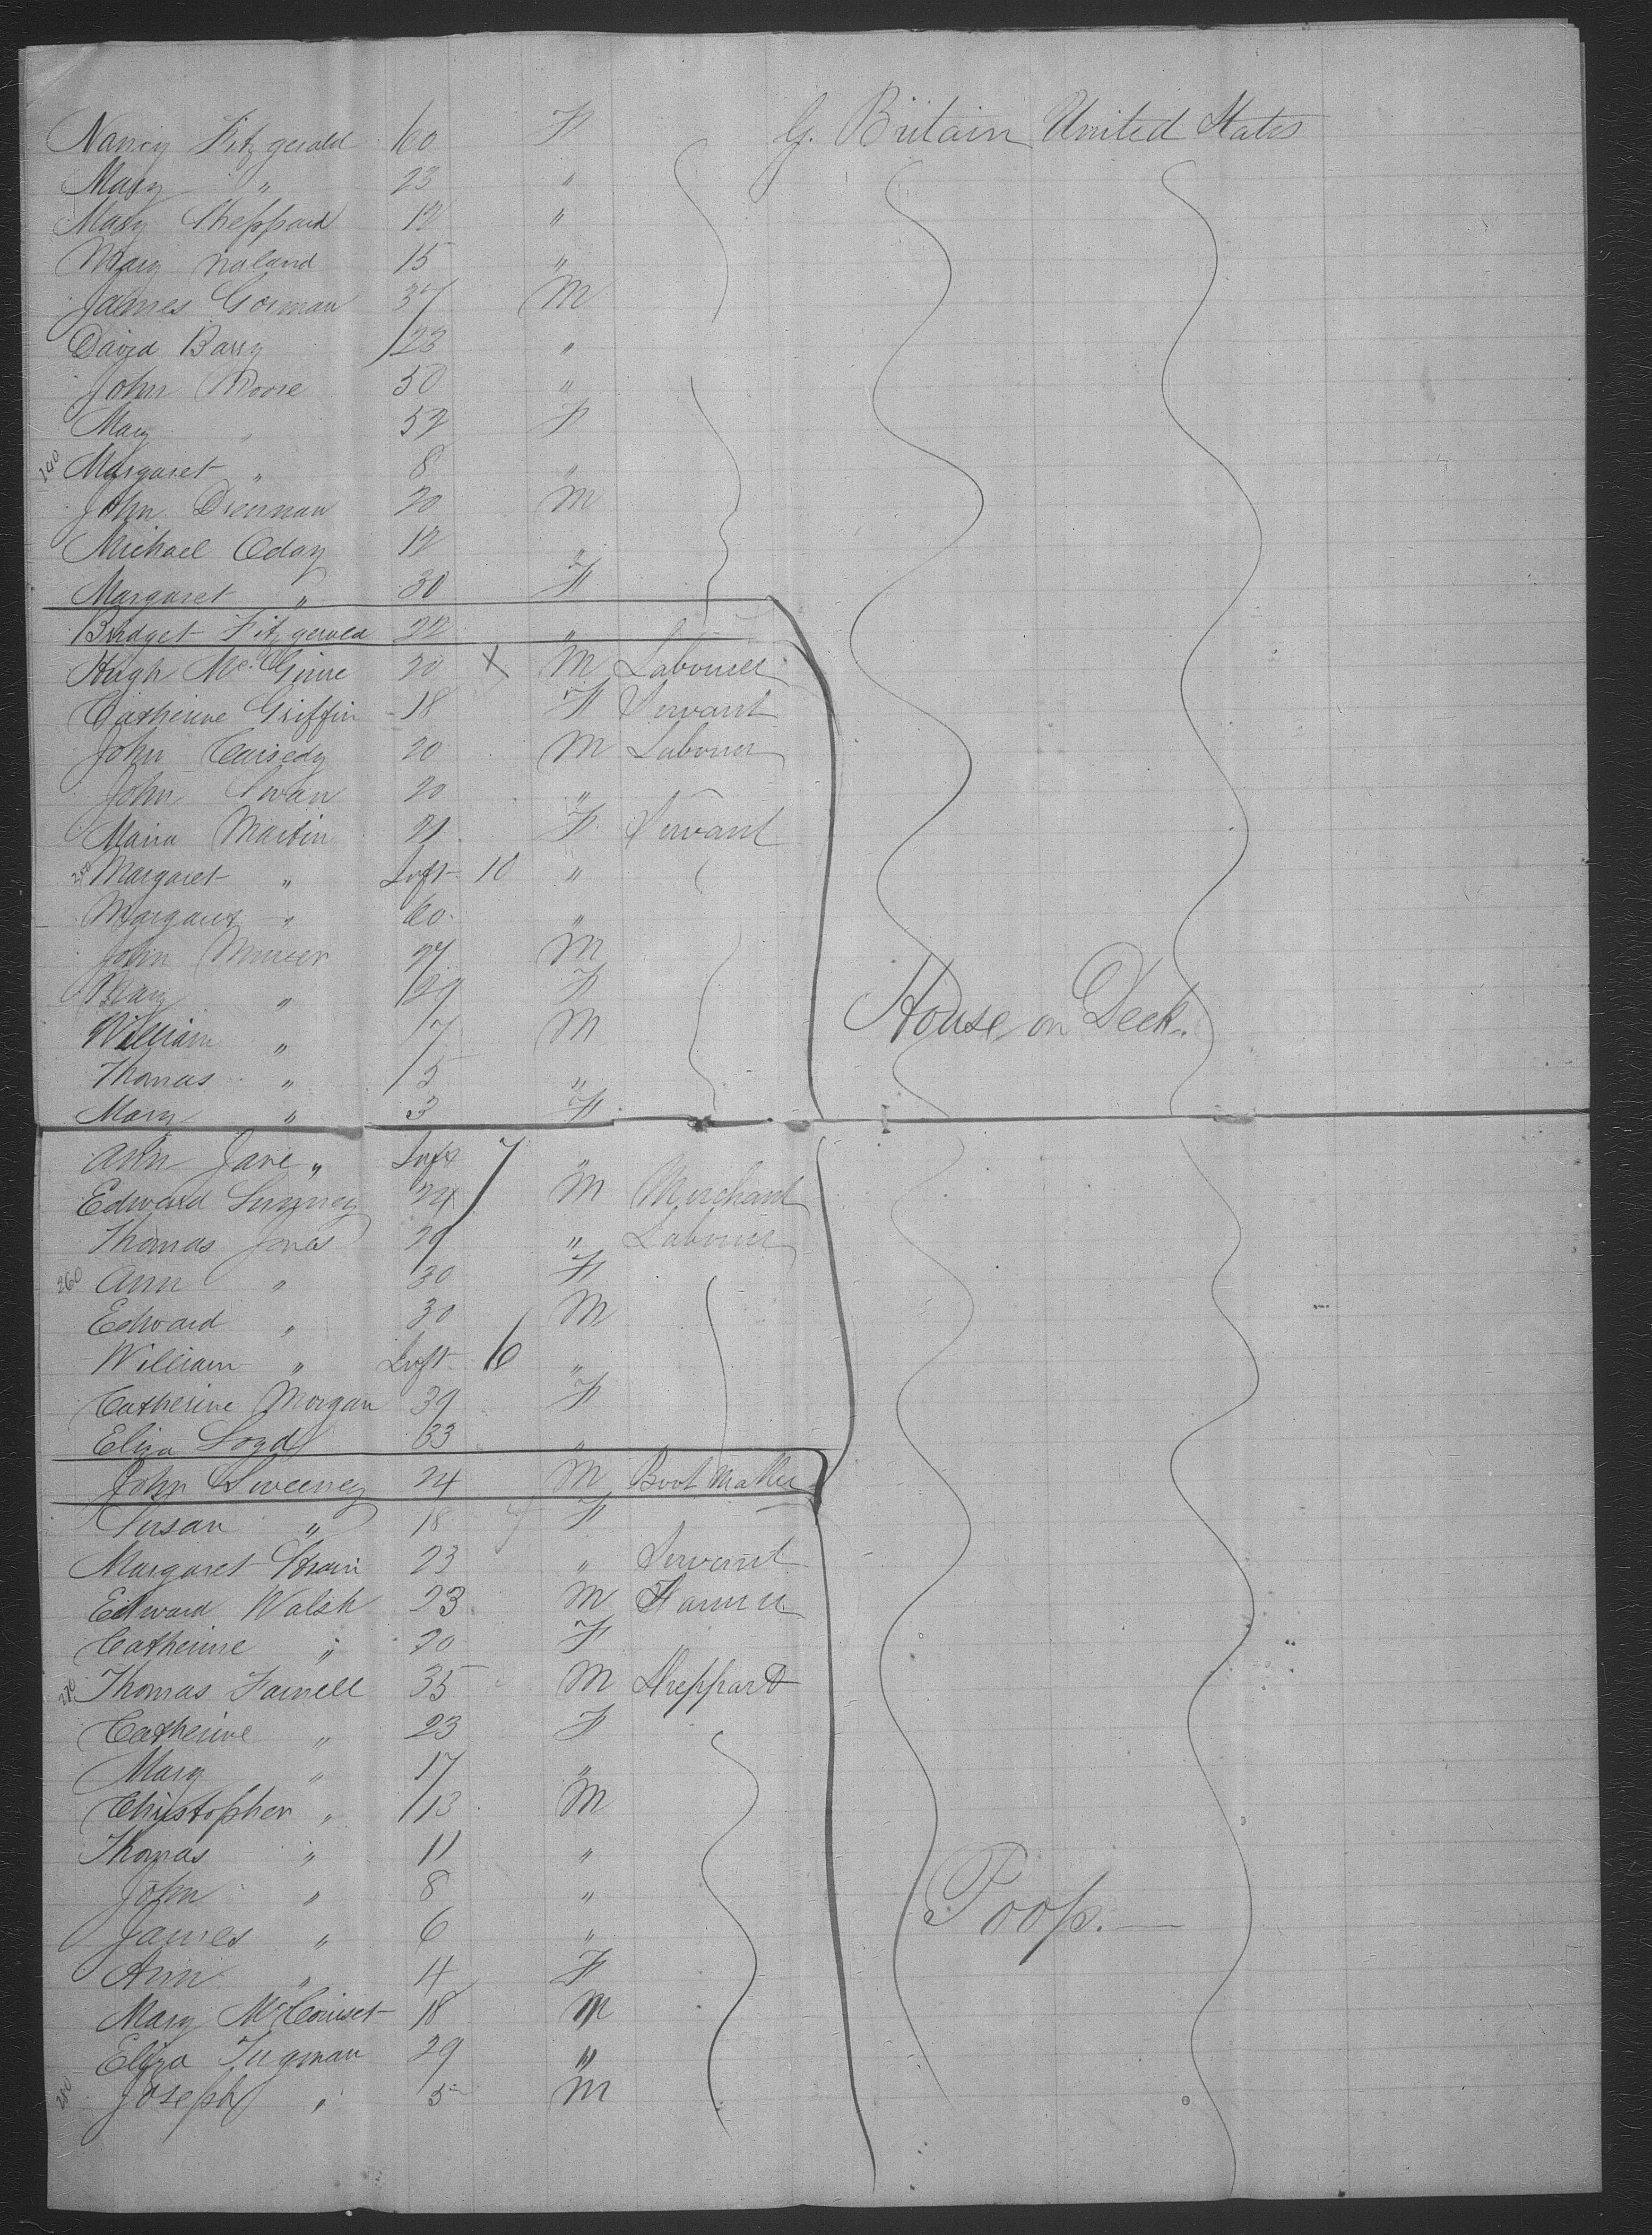 Nancy Fitzgerald 60 F G. Britain United States
Mary " 23 "
Mary Sheppard 12 "
Mary Noland 15 "
James Gorman 37 M
David Barry 23 "
John Moore 50 "
Mary " 52 F
240 Margaret " 8 "
John Drennan 20 M
Michael Oday 12 "
Margaret " 30 F
Bridget Fitzgerald 22 "
Hugh McGuire 20 X M Labourer
Catherine Griffin 18 F Servant
John 20 M Labourer
John Swan 20 "
Maria Martin 21 F Servant
250 Margaret " Inft 10 "
Margaret " 60 "
John 27 M
Mary " 29 F
William " 7 M House on Deck.
Thomas " 5 "
Mary " 3 F
Ann Jane " Inft 7 "
Edward 24 M Merchant
Thomas Jones 29 " Labourer
260 Ann " 30 F
Edward " 30 M
William " Inft 6 "
Catherine Morgan 39 F
Eliza Loyd 33 "
John Sweeney 24 M Boot Maker
Susan " 18 F
Margaret 23 " Servant
Edward Walsh 23 M Farmer
Catherine " 20 F
270 Thomas Farrell 35 M Sheppard
Catherine " 23 F
Mary " 17 "
Christopher " 13 M
Thomas " 11 "
John " 8 "
James " 6 " Poop.
Ann " 4 F
Mary 18 M
Eliza Tugman 29 "
280 Joseph " 5 M